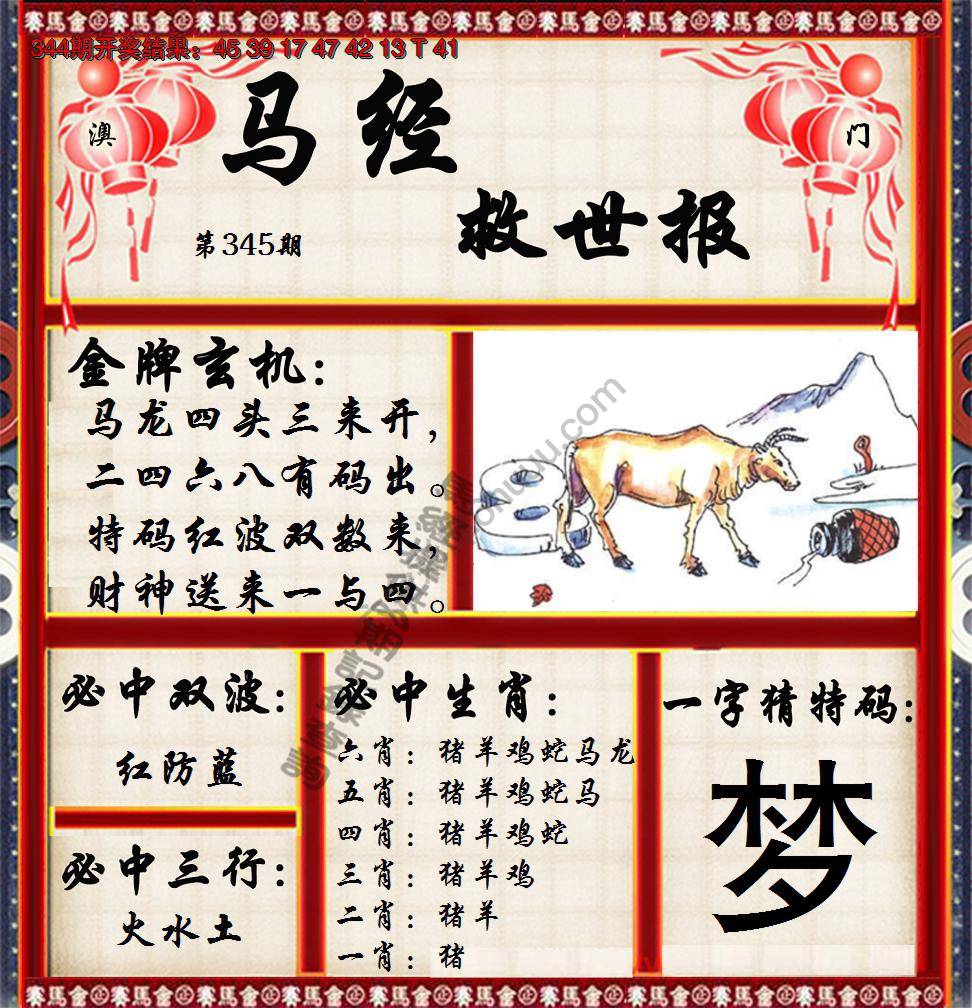 344期开奖结果：45 39 17 47 42 13 T 41
澳
门
马经
救世报
第345期
金牌玄机：
马龙四头三来开，
二四六八有码出。
特码红波双数来，
财神送来一与四。
必中双波：
红防蓝
必中三行：
火水土
必中生肖：
六肖：猪羊鸡蛇马龙
五肖：猪羊鸡蛇马
四肖：猪羊鸡蛇
三肖：猪羊鸡
二肖：猪羊
一肖：猪
一字猜特码：
梦